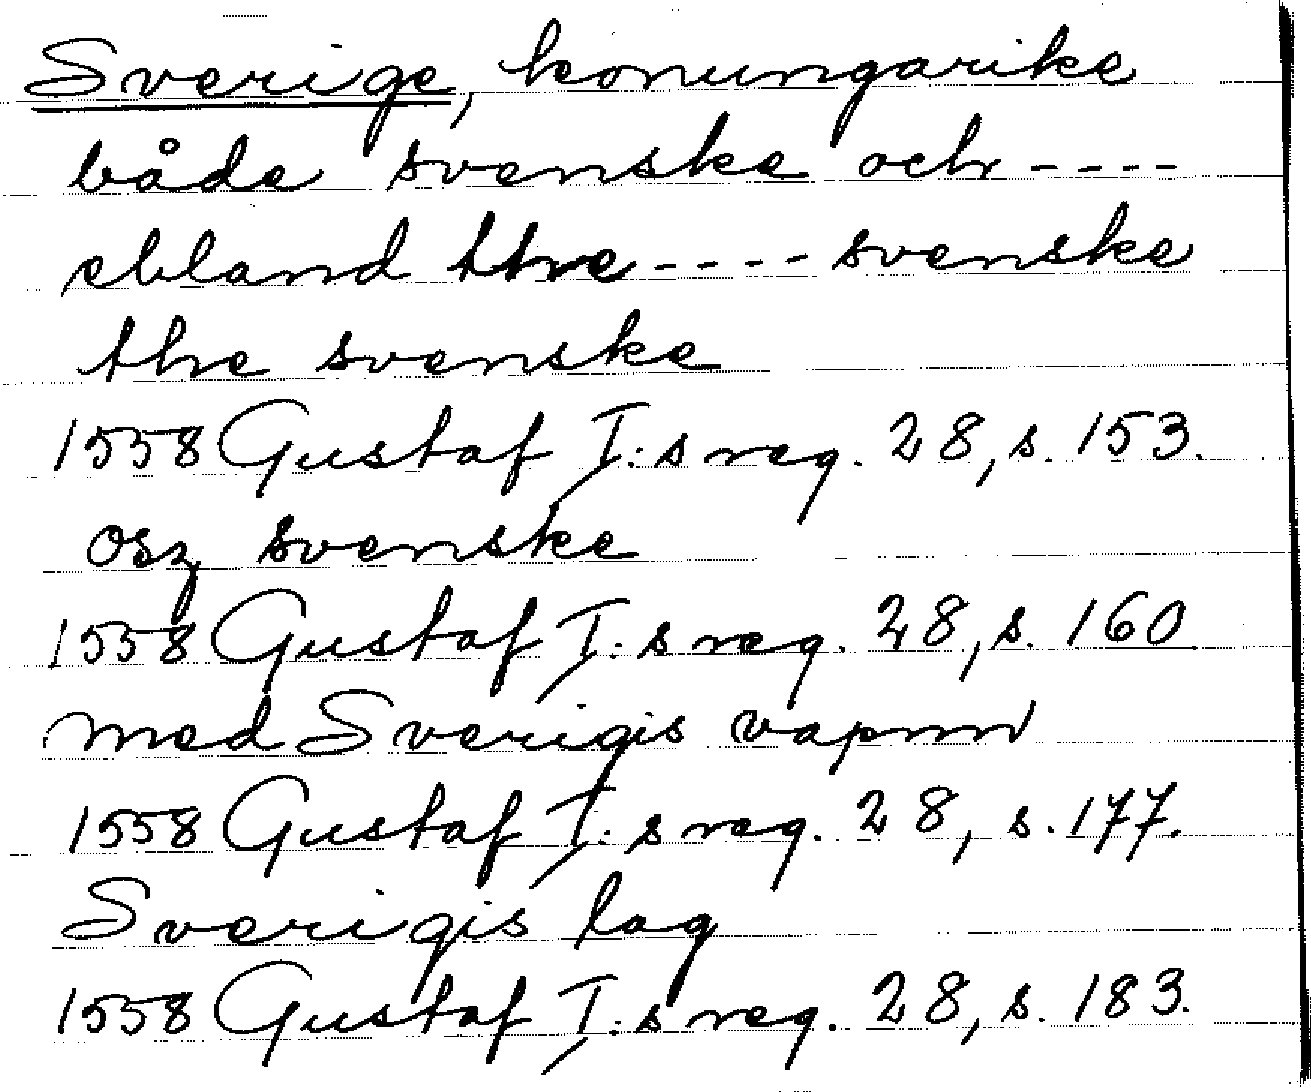 Sverige, konungarike
både svenske och ----
ebland the ---- svenske
the svenske
1558 Gustaf I:s reg. 28, s. 153.
osz svenske
1558 Gustaf I:s reg. 28, s. 160
med Sverigis vapnn
1558 Gustaf I:s reg. 28, s. 177.
Sverigis lag
1558 Gustaf I:s reg. 28, s. 183.